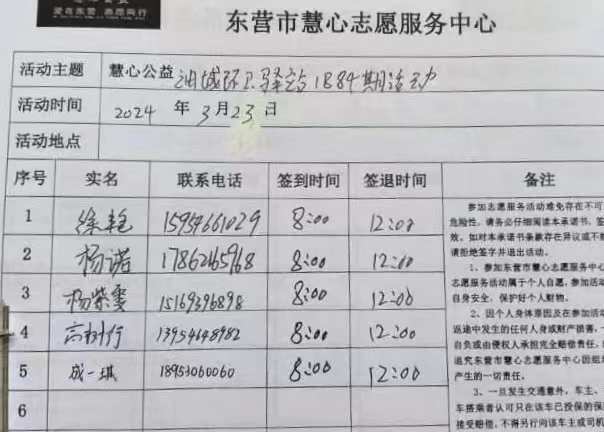 爱在东营 惠愿同行
东营市慧心志愿服务中心
活动主题 慧心公益 油城环卫驿站1884期活动
活动时间 2024 年 3月23日
活动地点
序号 实名 联系电话 签到时间 签退时间 备注
1 徐艳 15954661029 8:00 12:00
2 杨诺 17862165968 8:00 12:00
3 杨紫雯 15169396898 8:00 12:00
4 高树行 13954648982 8:00 12:00
5 成一琪 18953060060 8:00 12:00
6
参加志愿服务活动难免存在不可
危险性,请务必仔细阅读本承诺书,签
效。如对本承诺书条款存在异议或不
请拒绝签字并退出活动。
1、参加东营市慧心志愿服务中心
志愿服务活动属于个人自愿,参加活动
自身安全,保护好个人财物。
2、因个人身体原因及在参加活动
返途中发生的任何人身或财产损害,
自负或由侵权人承担完全赔偿责任,
追究东营市慧心志愿服务中心因组
产生的一切责任。
3、一旦发生交通意外,车主、
车搭乘者认可只在该车已投保的保
接受赔偿,不得另行向该车主或司机